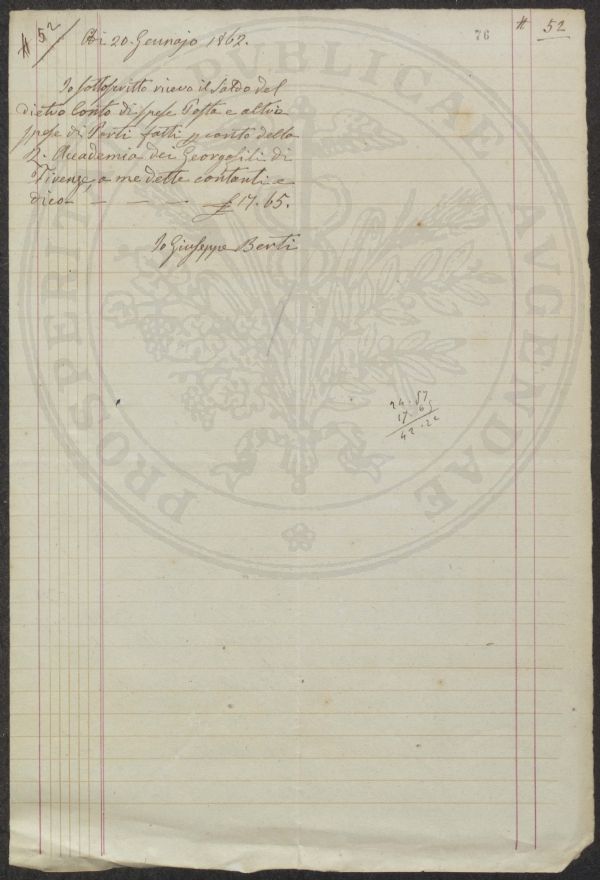 # 52
Adi 20. Gennajo 1862.
76
# 52
Io sottoscritto ricevo il Saldo del
dietro Conto di spese Posta e altre
spese di Porti fatti p conto della
R. Accademia dei Georgofili di
Firenze, a me dette contanti e
dico - - - - £ 17. 65.
Io Giuseppe Berti
24.57
17.65
42.22
PROSPERITATI PVBLICAE AVGENDAE